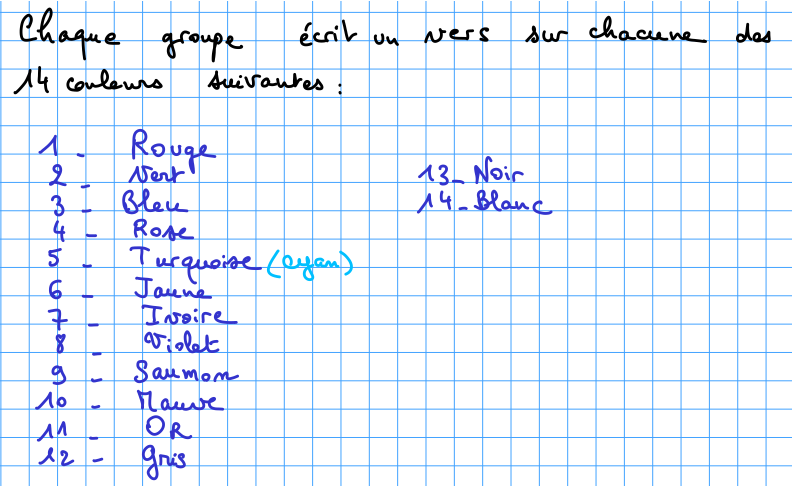 Chaque groupe écrit un vers sur chacune des
14 couleurs suivantes :
1 - Rouge
2 - Vert
3 - Bleu
4 - Rose
5 - Turquoise (cyan)
6 - Jaune
7 - Ivoire
8 - Violet
9 - Saumon
10 - Mauve
11 - OR
12 - Gris
13 - Noir
14 - Blanc